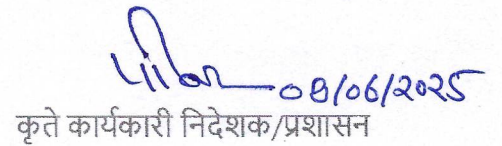 09/06/2025
कृते कार्यकारी निदेशक/प्रशासन